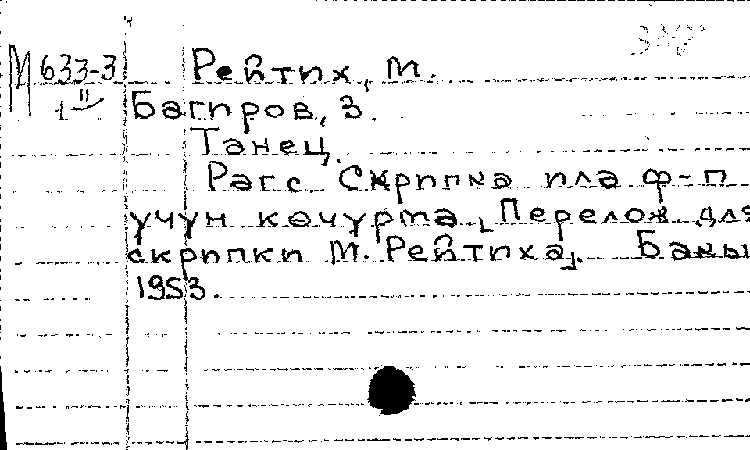 М 633-3 Рейтих, М.
1 II Багиров, З.
Танец.
Рәгс Скрипка илә ф-п
үчүн көчүрмә [Перелож. для
скрипки М. Рейтиха]. Бакы
1953.